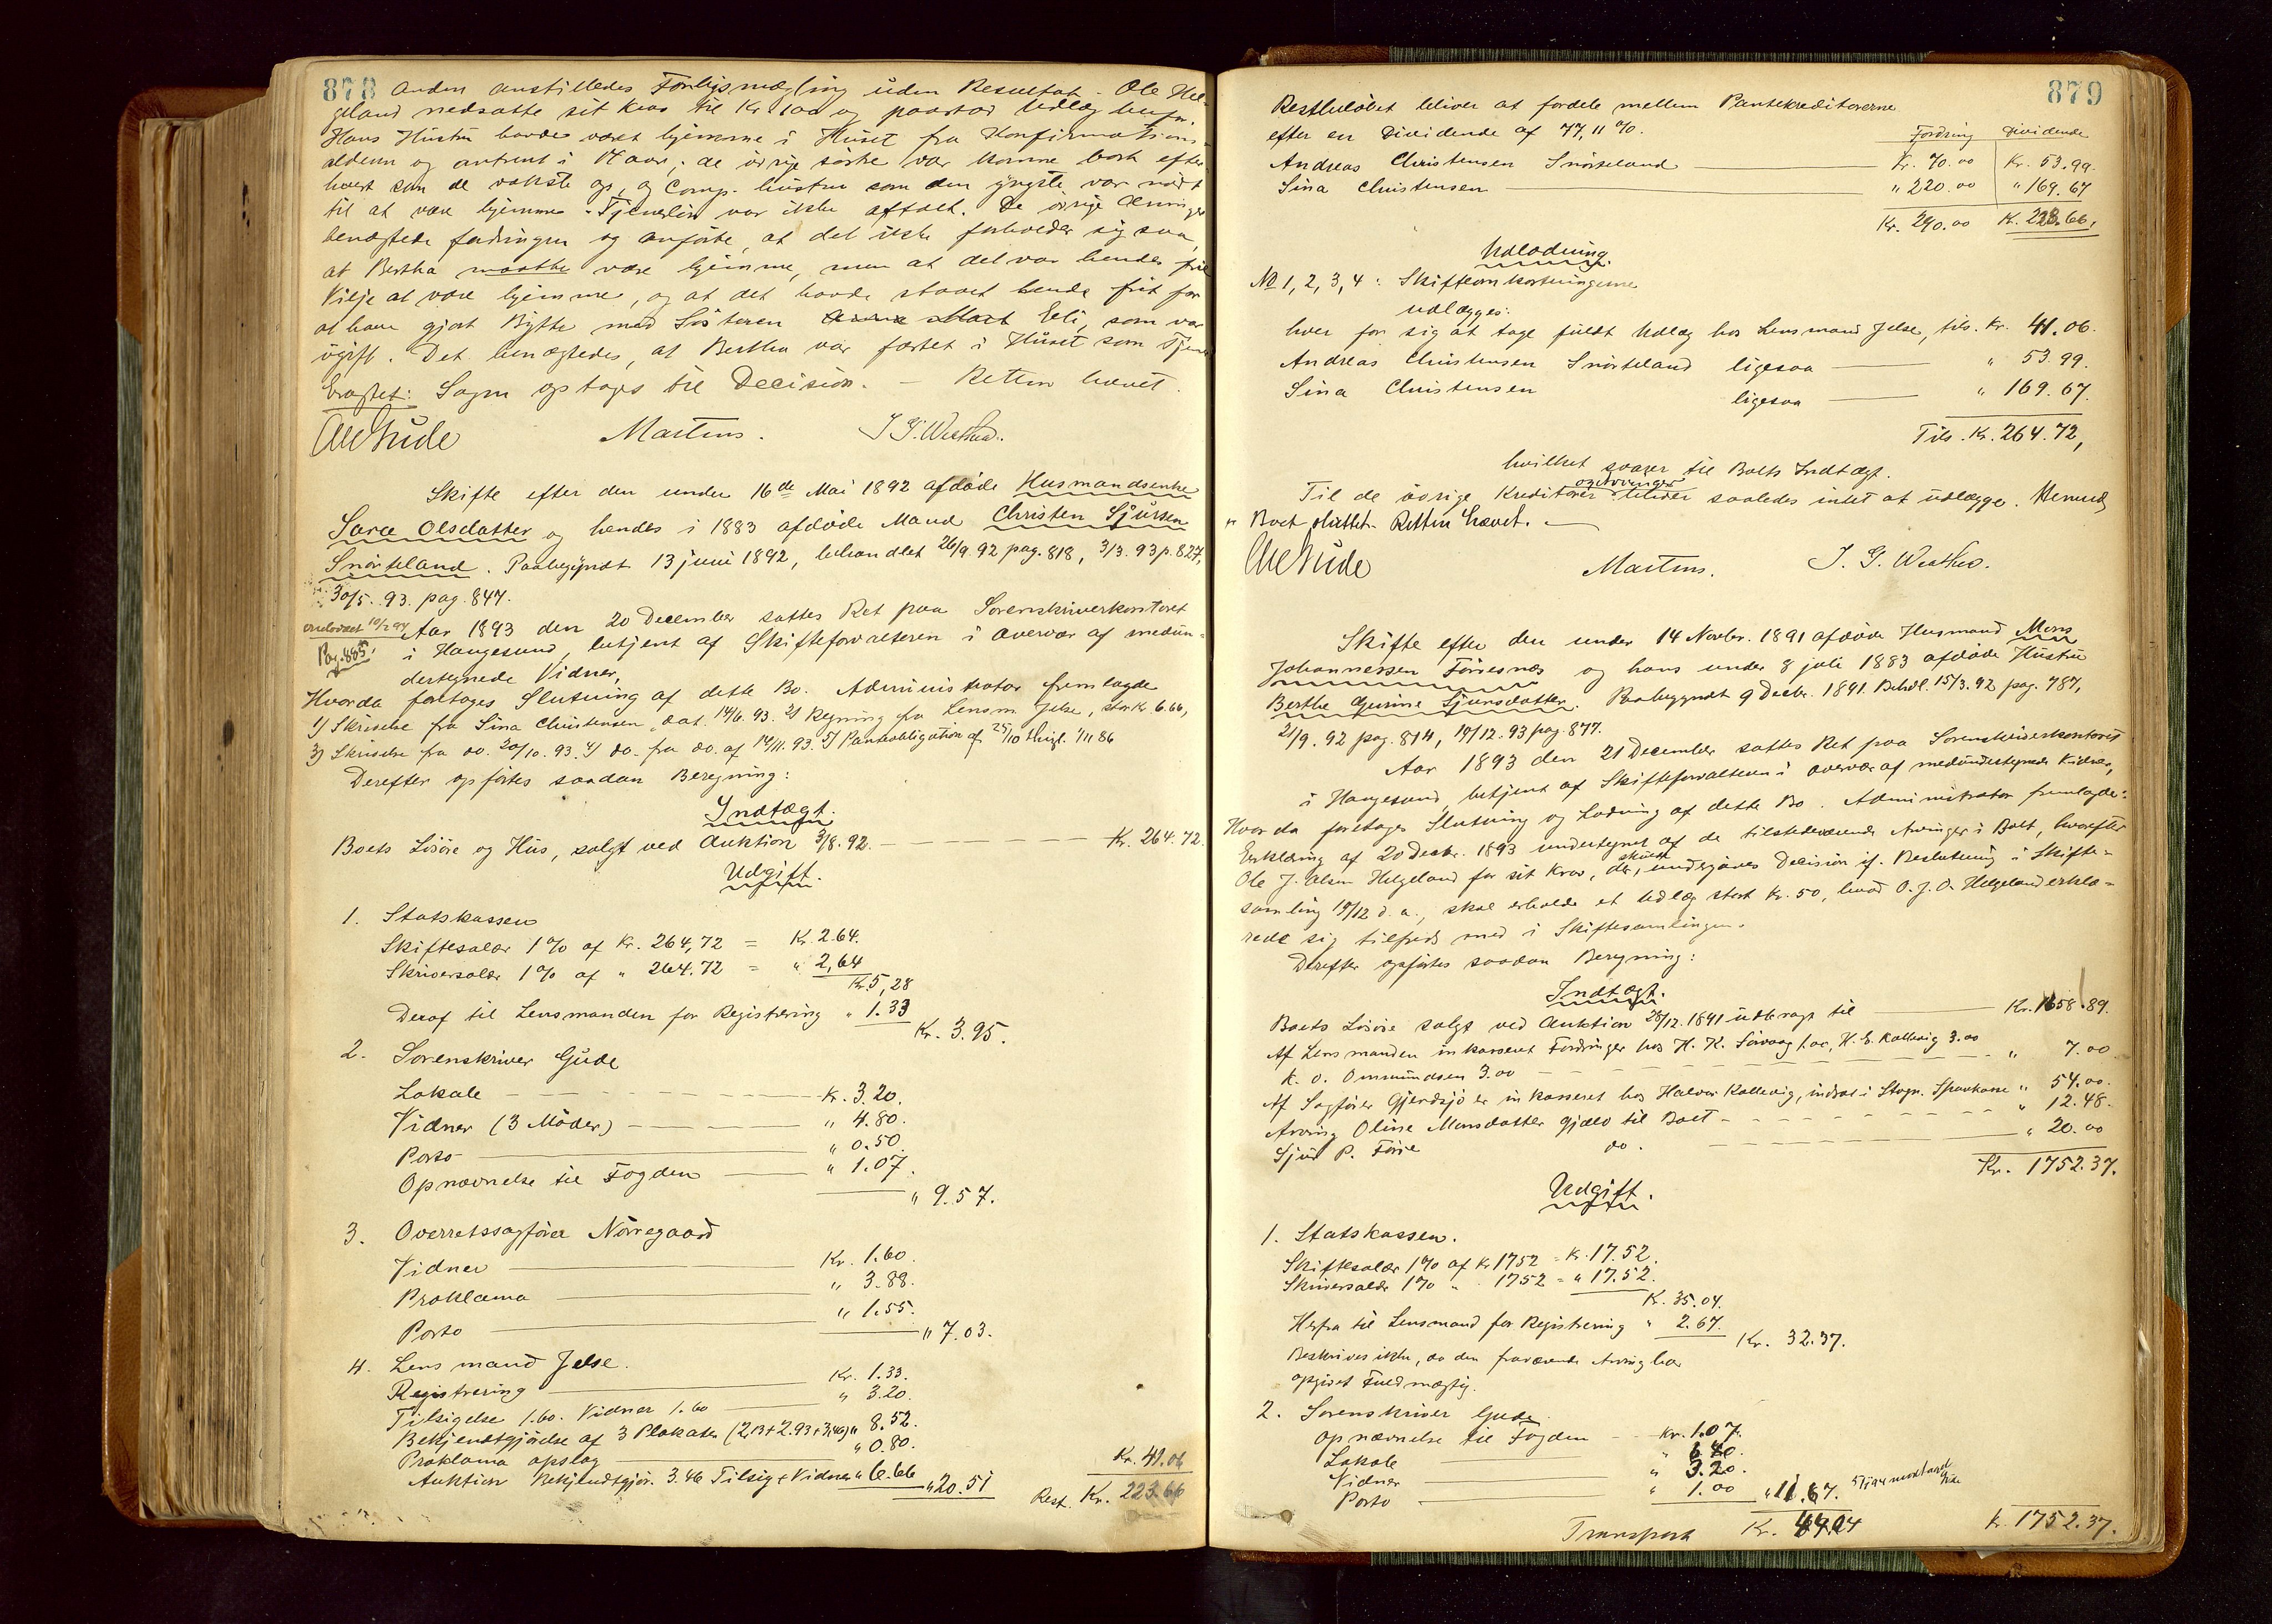 878
Anden anstilledes Forligsmægling uden Resultat. Ole Hel-
geland nedsatte sit krav til Kr 100 og paastod Udlæg herfor.
Hans Hustru havde været hjemme i Huset fra Konfirmations-
alderen og omtrent i 14 aar; de övrige söskne var komne bort efter-
hvert som de vokste op, og Comp. hustru som den yngste var nödt
til at være hjemme. Tjenerlön var ikke aftalt. De övrige Arvinger
benægtede fordringen og anförte, at det ikke forholder sig saa,
at Bertha maatte være hjemme, men at det var hendes frie
Vilje at være hjemme, og at det havde staaet hende frit for
at have gjort Bytte med Sösteren Eli, som var
ugift. Det benægtedes, at Bertha var fæstet i Huset som Tjener
Eragtet: Sagen optages til Decision. — Retten hævet.
OleGude Martens. J. G. Westhed.
Skifte efter den under 16de Mai 1892 afdöde Husmandsenke
Sara Olsdatter og hendes i 1883 afdöde Mand Christen Sjursen
Snörteland. Paabegyndt 13 juni 1892, behandlet 26/9. 92 pag. 818, 3/3. 93 p. 827,
30/5. 93. pag. 847.
Aar 1893 den 20 December sattes Ret paa Sorenskriverkontoret
Pag. 885.
i Haugesund, betjent af Skifteforvalteren i overvær af medun-
dertegnede Vidner,
Hvorda foretoges Slutning af dette Bo. Administrator fremlagde
1) Skrivelse fra Sina Christensen, dat. 14/6. 93. 2) Regning fra Lensm. Jelse, stor kr 6.66,
3) Skrivelse fra do. 20/10. 93. 4) do. fra do. af 14/11. 93. 5) Panteobligation af 25/10 thigl. 1/11 86
Derefter opförtes saadan Beregning:
Indtægt.
Boets Lösöre og Hus, solgt ved Auktion 3/8. 92. — Kr. 264.72.
Udgift.
1. Statskassen
Skiftesalær 1% af Kr. 264,72 = Kr. 2.64.
Skriversalær 1% af " 264.72 = " 2,64
Kr. 5,28
Deraf til Lensmanden for Registrering " 1.33
Kr. 3.95.
2. Sorenskriver Gude
Lokale — Kr. 3.20.
Vidner (3 Möder) — " 4.80.
Porto — " 0.50.
Opnævnelse til Fogden — " 1.07.
" 9.57.
3. Overretssagförer Nörregaard
Vidner — Kr. 1.60.
Proklama — " 3.88.
Porto — " 1.55.
" 7.03.
4. Lensmand Jelse.
Registrering — Kr. 1.33.
Tilsigelse 1.60. Vidner 1.60 — " 3.20.
Bekjendtgjörelse af 3 Plakater (2,13+2.93+3,46) " 8.52.
Proklama opslag — " 0.80.
Auktion Bekjendtgjör. 3.46 Tilsig. & Vidner " 6.66 " 20.51 Kr. 41.06
Rest. Kr. 223.66
879
Restbelöbet bliver at fordele mellem Pantekreditorerne
efter en Dividende af 77,11 %.
Fordring Dividende
Andreas Christensen Snörteland — Kr. 70.00 Kr. 53.99.
Sina Christensen — " 220.00 " 169.67
Kr. 290.00 Kr. 223.66,
Udlodning.
No 1, 2, 3, 4: Skifteomkostningerne
udlægges:
hver for sig at tage fuldt Udlæg hos Lensmand Jelse, tils. Kr. 41.06.
Andreas Christensen Snörteland ligesaa — " 53.99.
Sina Christensen ligesaa — " 169.67.
Tils. Kr. 264.72,
hvilket svarer til Boets Indtægt.
Til de övrige Kreditorer og Arvinger bliver saaledes intet at udlægge. Hermed
er Boet sluttet. Retten hævet. —
OleGude Martens. J. G. Westhed.
Skifte efter den under 14 Novbr. 1891 afdöde Husmand Mons
Johannessen Förresnæs og hans under 8 juli 1883 afdöde Hustru
Berthe Gurine Sjursdatter. Paabegyndt 9 Decbr. 1891. Behdl. 15/3. 92 pag. 787,
21/9. 92 pag. 814, 19/12. 93 pag. 877.
Aar 1893 den 21 December sattes Ret paa Sorenskriverkontoret
i Haugesund, betjent af Skifteforvalteren i overvær af medundertegnede Vidner,
Hvorda foretoges Slutning og Lodning af dette Bo. Administrator fremlagde:
Erklæring af 20 Decbr. 1893 undertegnet af de tilstedeværende Arvinger i Boet, hvorefter
Ole J. Olsen Helgeland for sit krav, der skulde undergives Decision if. Beslutning i Skifte-
samling 19/12 d. a., skal erholde et Udlæg stort Kr. 50, hvad O. J. O. Helgeland erklæ-
rede sig tilfreds med i Skiftesamlingen.
Derefter opförtes saadan Beregning:
Indtægt.
Boets Lösöre solgt ved Auktion 28/12. 1891 udbragt til — Kr. 1658.89.
Af Lensmanden inkasseret Fordringer hos H. K. Sörvaag 1.00, H. E. Kallevig 3.00
K. O. Ommundsen 3.00 — " 7.00
Af Sagförer Gjerdsjö er inkasseret hos Halvor Kallevig, indsat i Stogn. Sparekasse " 54.00.
Arving Oline Monsdatter gjæld til Boet — " 12.48.
Sjur P. Förre do. — " 20.00
Kr. 1752.37.
Udgift.
1. Statskassen.
Skiftesalær 1% af Kr 1752 = Kr. 17.52.
Skriversalær 1% " 1752 = " 17.52.
Kr. 35.04.
Herfra til Lensmand for Registrering " 2.67.
Kr. 32.37.
Beskrives ikke, da den fraværende Arving har
opgivet Fuldmægtig.
2. Sorenskriver Gude.
Opnævnelse til Fogden — Kr. 1.07.
Lokale — " 6.40.
Vidner — " 3.20.
Porto — " 1.00 " 11.67.
Transport Kr. 44.04 Kr. 1752.37.